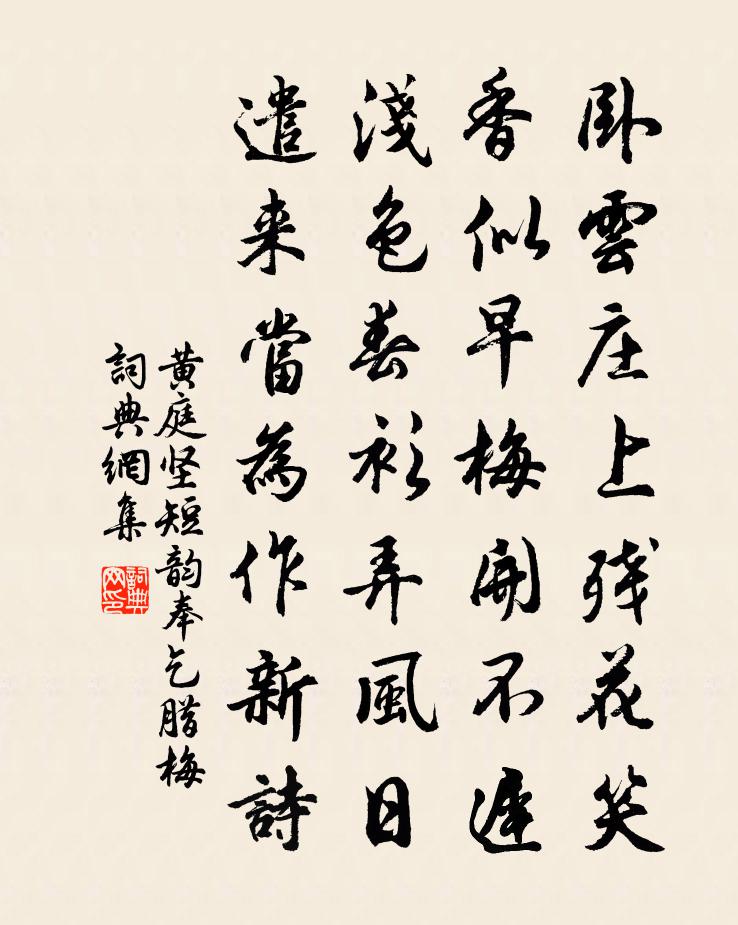 卧雲庄上残花笑
香似早梅開不遲
淺色春衫弄風日
遣来當為作新詩
黄庭坚短韵奉乞腊梅
詞典網集
詞典网印